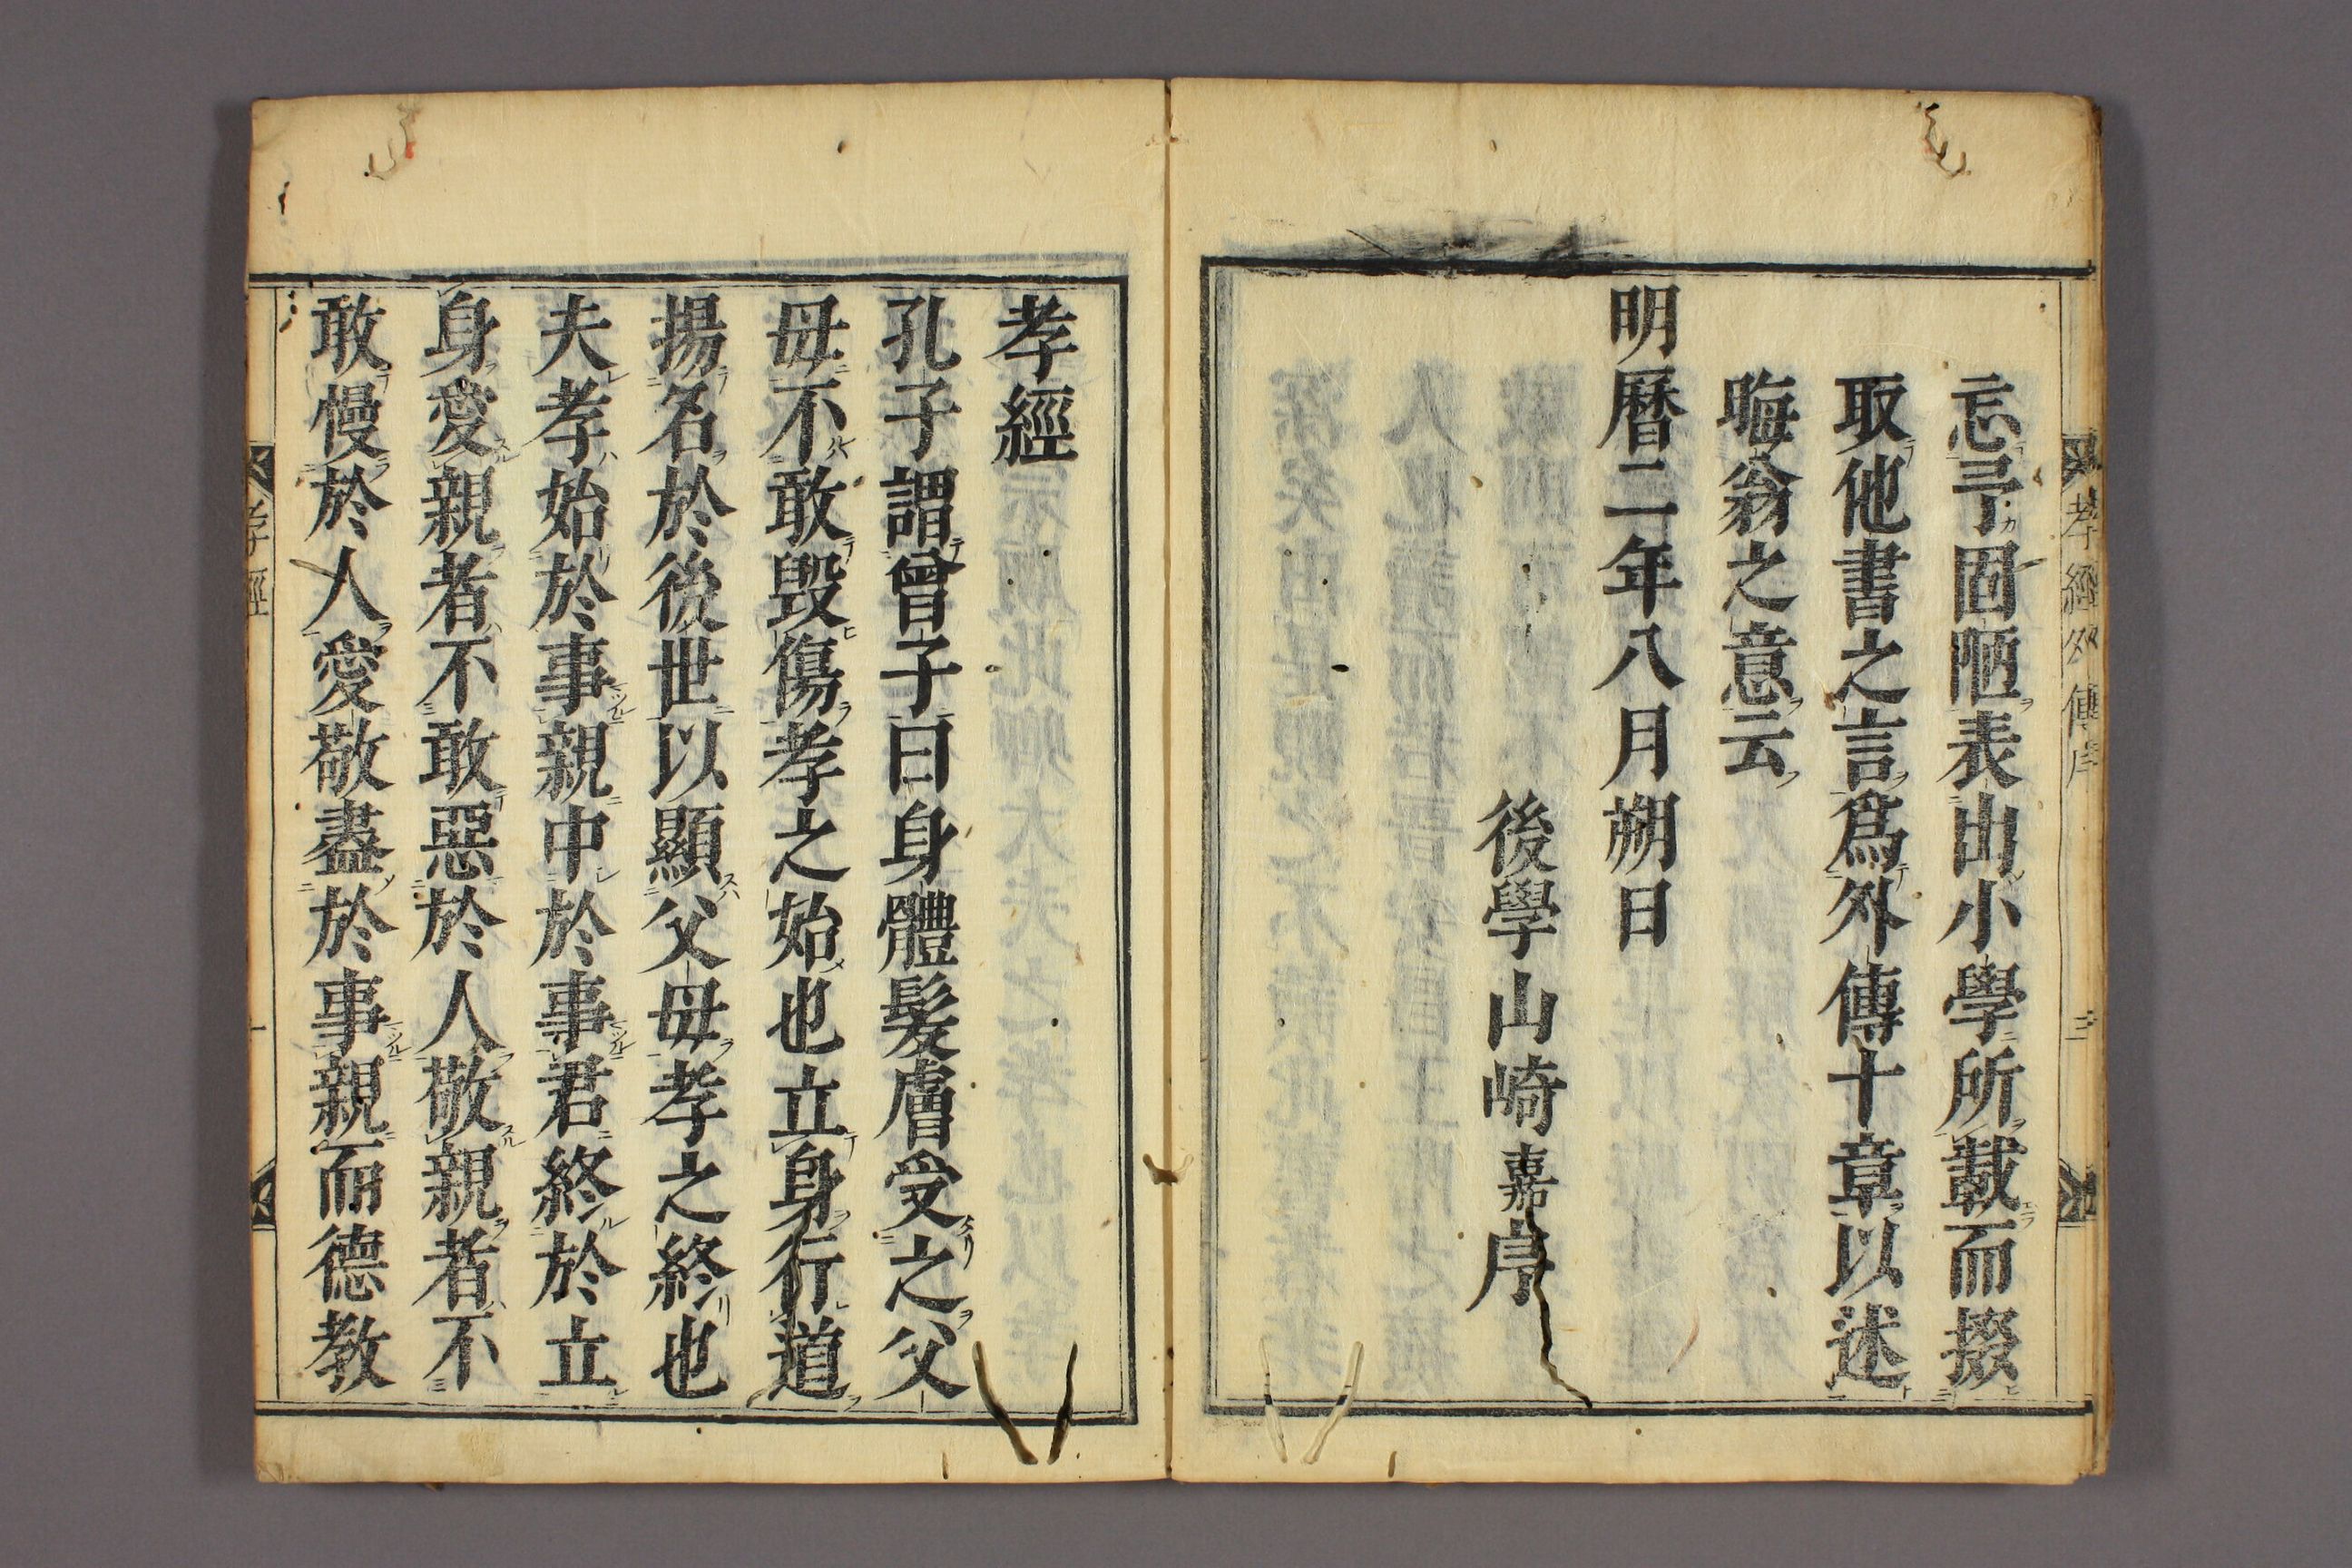 忘予固陋表出小學所載而掇
取他書之言爲外傳十章以述
晦翁之意云
明曆二年八月朔日
後學山崎嘉序
孝經外傳序
三
孝經
孔子謂曾子曰身體髮膚受之父
母不敢毀傷孝之始也立身行道
揚名於後世以顯父母孝之終也
夫孝始於事親中於事君終於立
身愛親者不敢惡於人敬親者不
敢慢於人愛敬盡於事親而德教
孝經
一